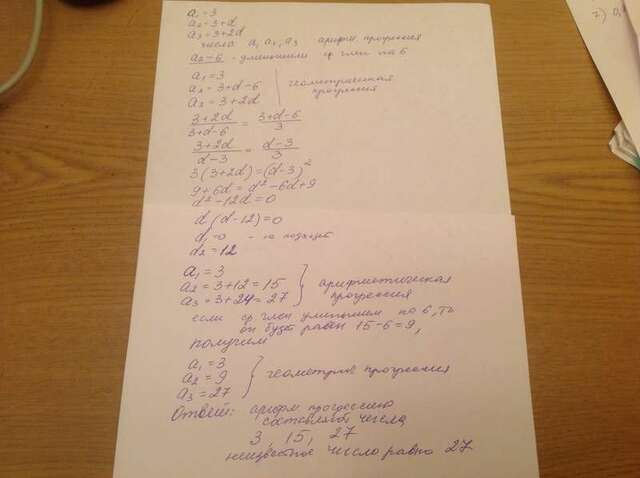 a₁=3
a₂=3+d
a₃=3+2d
числа a₁ a₂, a₃ арифм. прогрессия
a₂-6 - уменьшили ср член на 6
a₁=3
a₂=3+d-6
a₃=3+2d
геометрическая
прогрессия
3+2d/3+d-6 = 3+d-6/3
3+2d/d-3 = d-3/3
3(3+2d)=(d-3)²
9+6d=d²-6d+9
d²-12d=0
d(d-12)=0
d₁=0 - не подходит
d₂=12
a₁=3
a₂=3+12=15
a₃=3+24=27
арифметическая
прогрессия
если ср. член уменьшим на 6, то
он будет равен 15-6=9,
получим
a₁=3
a₂=9
a₃=27
геометрич прогрессия
Ответ: арифм прогрессию
составляют числа
3, 15, 27
неизвестное число равно 27
2)